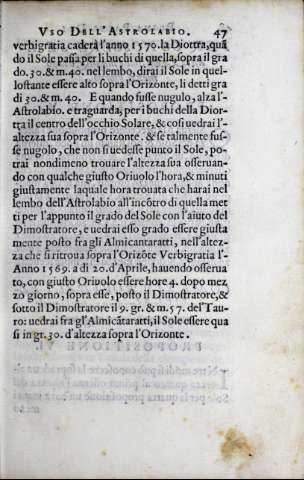 VSO DELL'ASTROLABIO. 47
verbigratia caderà l'anno 1570. la Diottra, quã
do il Sole passa per li buchi di quella, sopra il gra
do. 30. & m. 40. nel lembo, dirai il Sole in quel-
lo stante essere alto sopra l'Orizonte, li detti gra
di 30. & m. 40. E quando fusse nugulo, alza l'A-
strolabio. e traguarda, per i buchi della Diot-
tra il centro dell'occhio Solare, & cosi uedrai l'-
altezza sua sopra l'Orizonte. & se talmente fus-
se nugolo, che non si uedesse punto il Sole, po
trai nondimeno trouare l'altezza sua osseruan-
do con qualche giusto Oriuolo l'hora, & minuti
giustamente laquale hora trouata che harai nel
lembo dell'Astrolabio all'incõtro di quella met
ti per l'appunto il grado del Sole con l'aiuto del
Dimostratore, e uedrai esso grado essere giusta
mente posto fra gli Almicantaratti, nell'altez-
za che si ritroua sopra l'Orizõte Verbigratia l'-
Anno 1569. a di 20. d'Aprile, hauendo osserua
to, con giusto Oriuolo essere hore 4. dopo mez
zo giorno, sopra esse, posto il Dimostratore, &
sotto il Dimostratore il 9. gr. & m. 57. del Tau-
ro: uedrai fra gl'Almicãtaratti, il Sole essere qua
si in gr. 30. d'altezza sopra l'Orizonte.